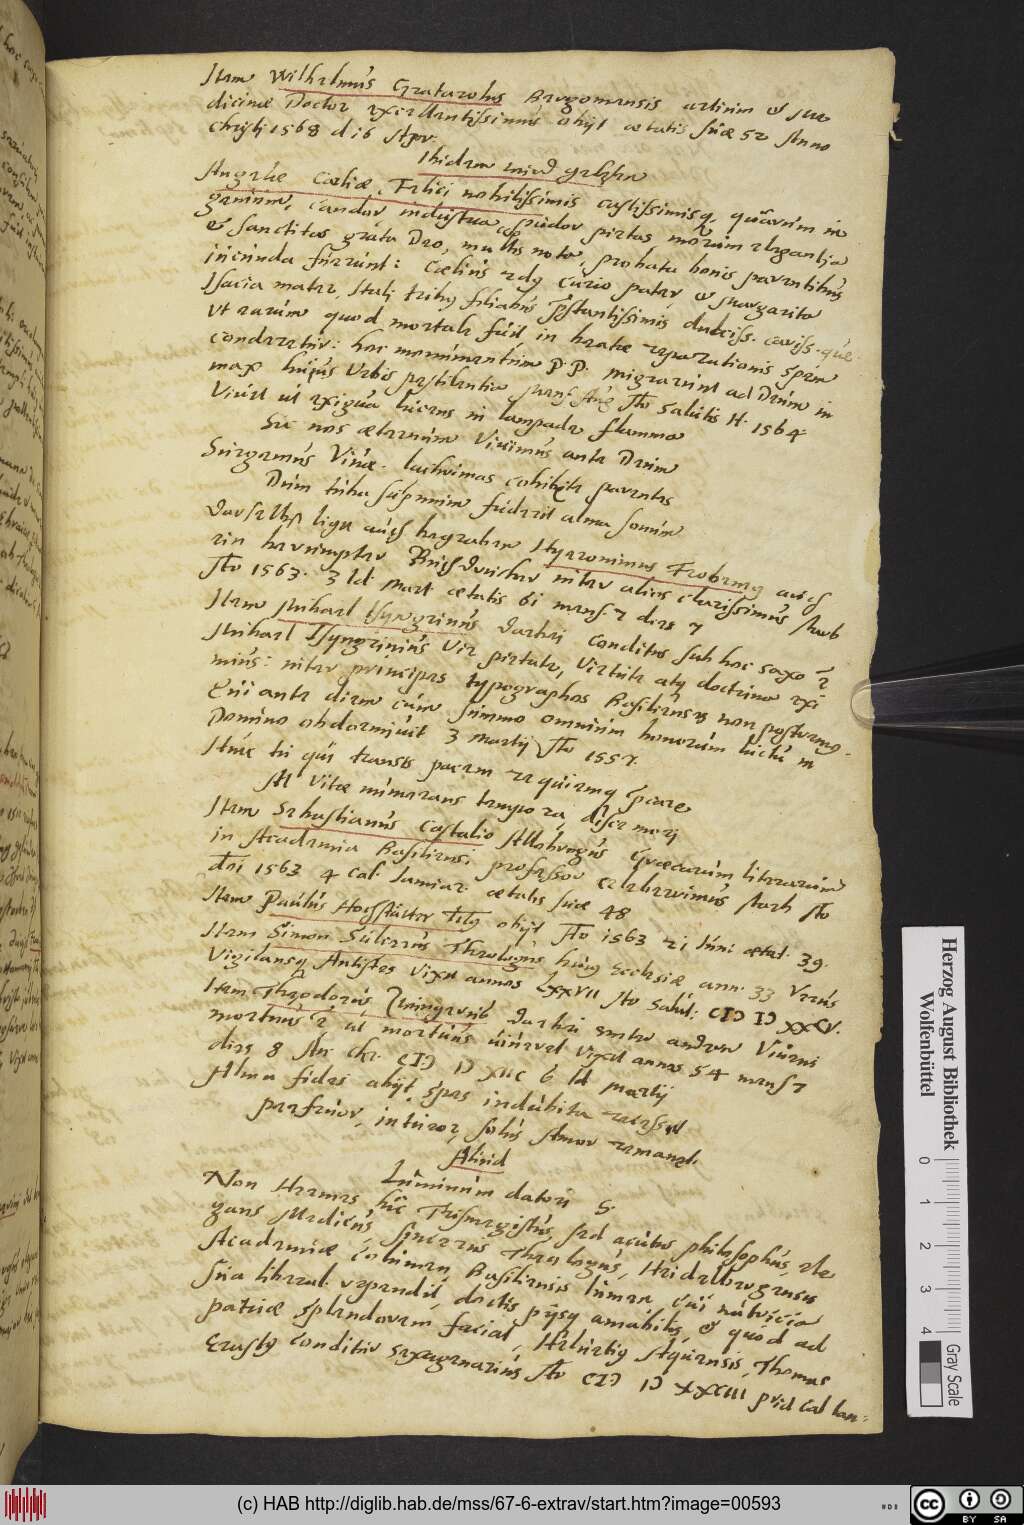 Item Wilhelmus Gratarolus Bergomensis artium et me
dicinae Doctor excellentissimus obijt aetatis suae 52 Anno
christi 1568 d 16 Apr.
Ibidem
Angelae Caeliae, Felici nobilissimis castissimisq, quarum in
genium, candor industria pudor pietas morum elegantia
et sanctitas grata Deo, multis nota, probata bonis parentibus
iucunda fuerunt: Caelius 2dq Curio pater et Margarita
Isacia mater, Itali tribq filiabus pstantissimis dulciss. cariss. que
ut rarum quod mortale fuit in beatae reparationis spem
conderetur: hoc monumentum P. P. migrarunt ad Deum in
max huius Urbis pestilentia mens Aug Ao Salutis H. 1564
Vivit ut exigua lucens in lampade flamma
Sic nos aeternum vivimus ante Deum
Surgemus Vivae. lachrimas cohibete parentes
Dum tuba supremum fuderit alma sonum
Daselbst ligt auch begraben Hyeronimus Frobenig auch
ein berumpter Buchdrucker inter alios clarissimus starb
Ao 1563. 3 Id. Mart aetatis 61 mens 7 dies 7
Item Michael Isyngrinus darbei conditus sub hoc saxo e
Michael Isyngrinius Vir pietate, virtute atq doctrina exi
mius: inter principes typographos Basilienses non postremq.
Qui ante diem cum summo omnium bonorum luctu in
Domino obdormiuit 3 Martij Ao 1557.
Hinc tu qui transis pacem requiemq spcare
At vitae numerans tempora, disce mori
Item Sebastianus Castalio Allobrogus Graecarum literarum
in Academia Basiliensi professor celeberrimus starb Ao
dni 1563 4 cal. Januar. aetatis suae 48
Item Paulus Hochstatter obijt Ao 1563 21 Juni aetat. 39.
Item Simon Sulcerus Theologus huiq Ecclesiae ann. 33 verus
Vigilansq Antistes vixit annos LXXVII Ao Salut: CIↃ IↃ XXCV.
Item Theodorus Zuingerus darbei unter andern Viuens
mortuus e ut mortuus uiueret vixit annos 54 mens 7
dies 8 An. chr. CIↃ IↃ XIIC 6 Id martij
Alma fides abijt spes indubita recessit
perfruor, intueor, solus Amor remanet.
Aliud
Luminum datori S.
Non Hermes hic Trismegistus, sed acutus philosophus, ele
gans Medicus sincerus Theologus, Heidelbergensis
Academiae columen, Basiliensis lumen cui nutricia
sua liberal. rependit, doctis pijsq amabilis, et quod ad
patriae splendorem faciat, Heluetiq Thomas
Erastq conditur sexagenarius Ao CIↃ IↃ XXCIII prid Cal Ian:
Herzog August Bibliothek
Wolfenbüttel
0 1 2 3 4
Gray Scale
(c) HAB http://diglib.hab.de/mss/67-6-extrav/start.htm?image=00593
cc BY SA